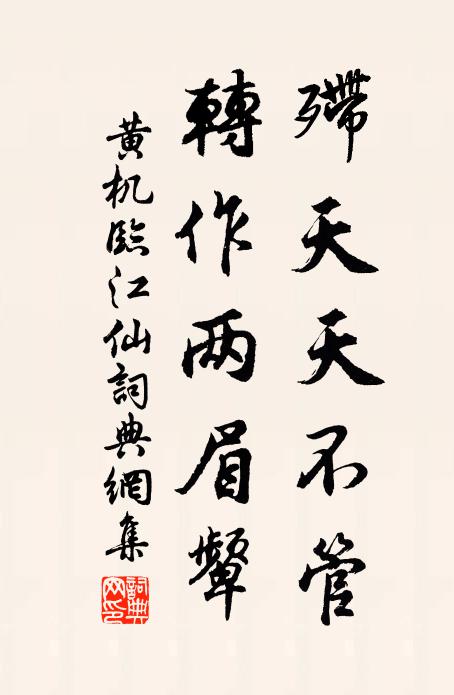 殢天天不管
轉作两眉顰
黄机臨江仙詞典網集
詞典网印